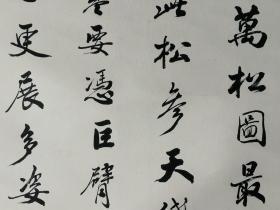 萬松圖最
此松參天
要憑巨臂
更展多姿